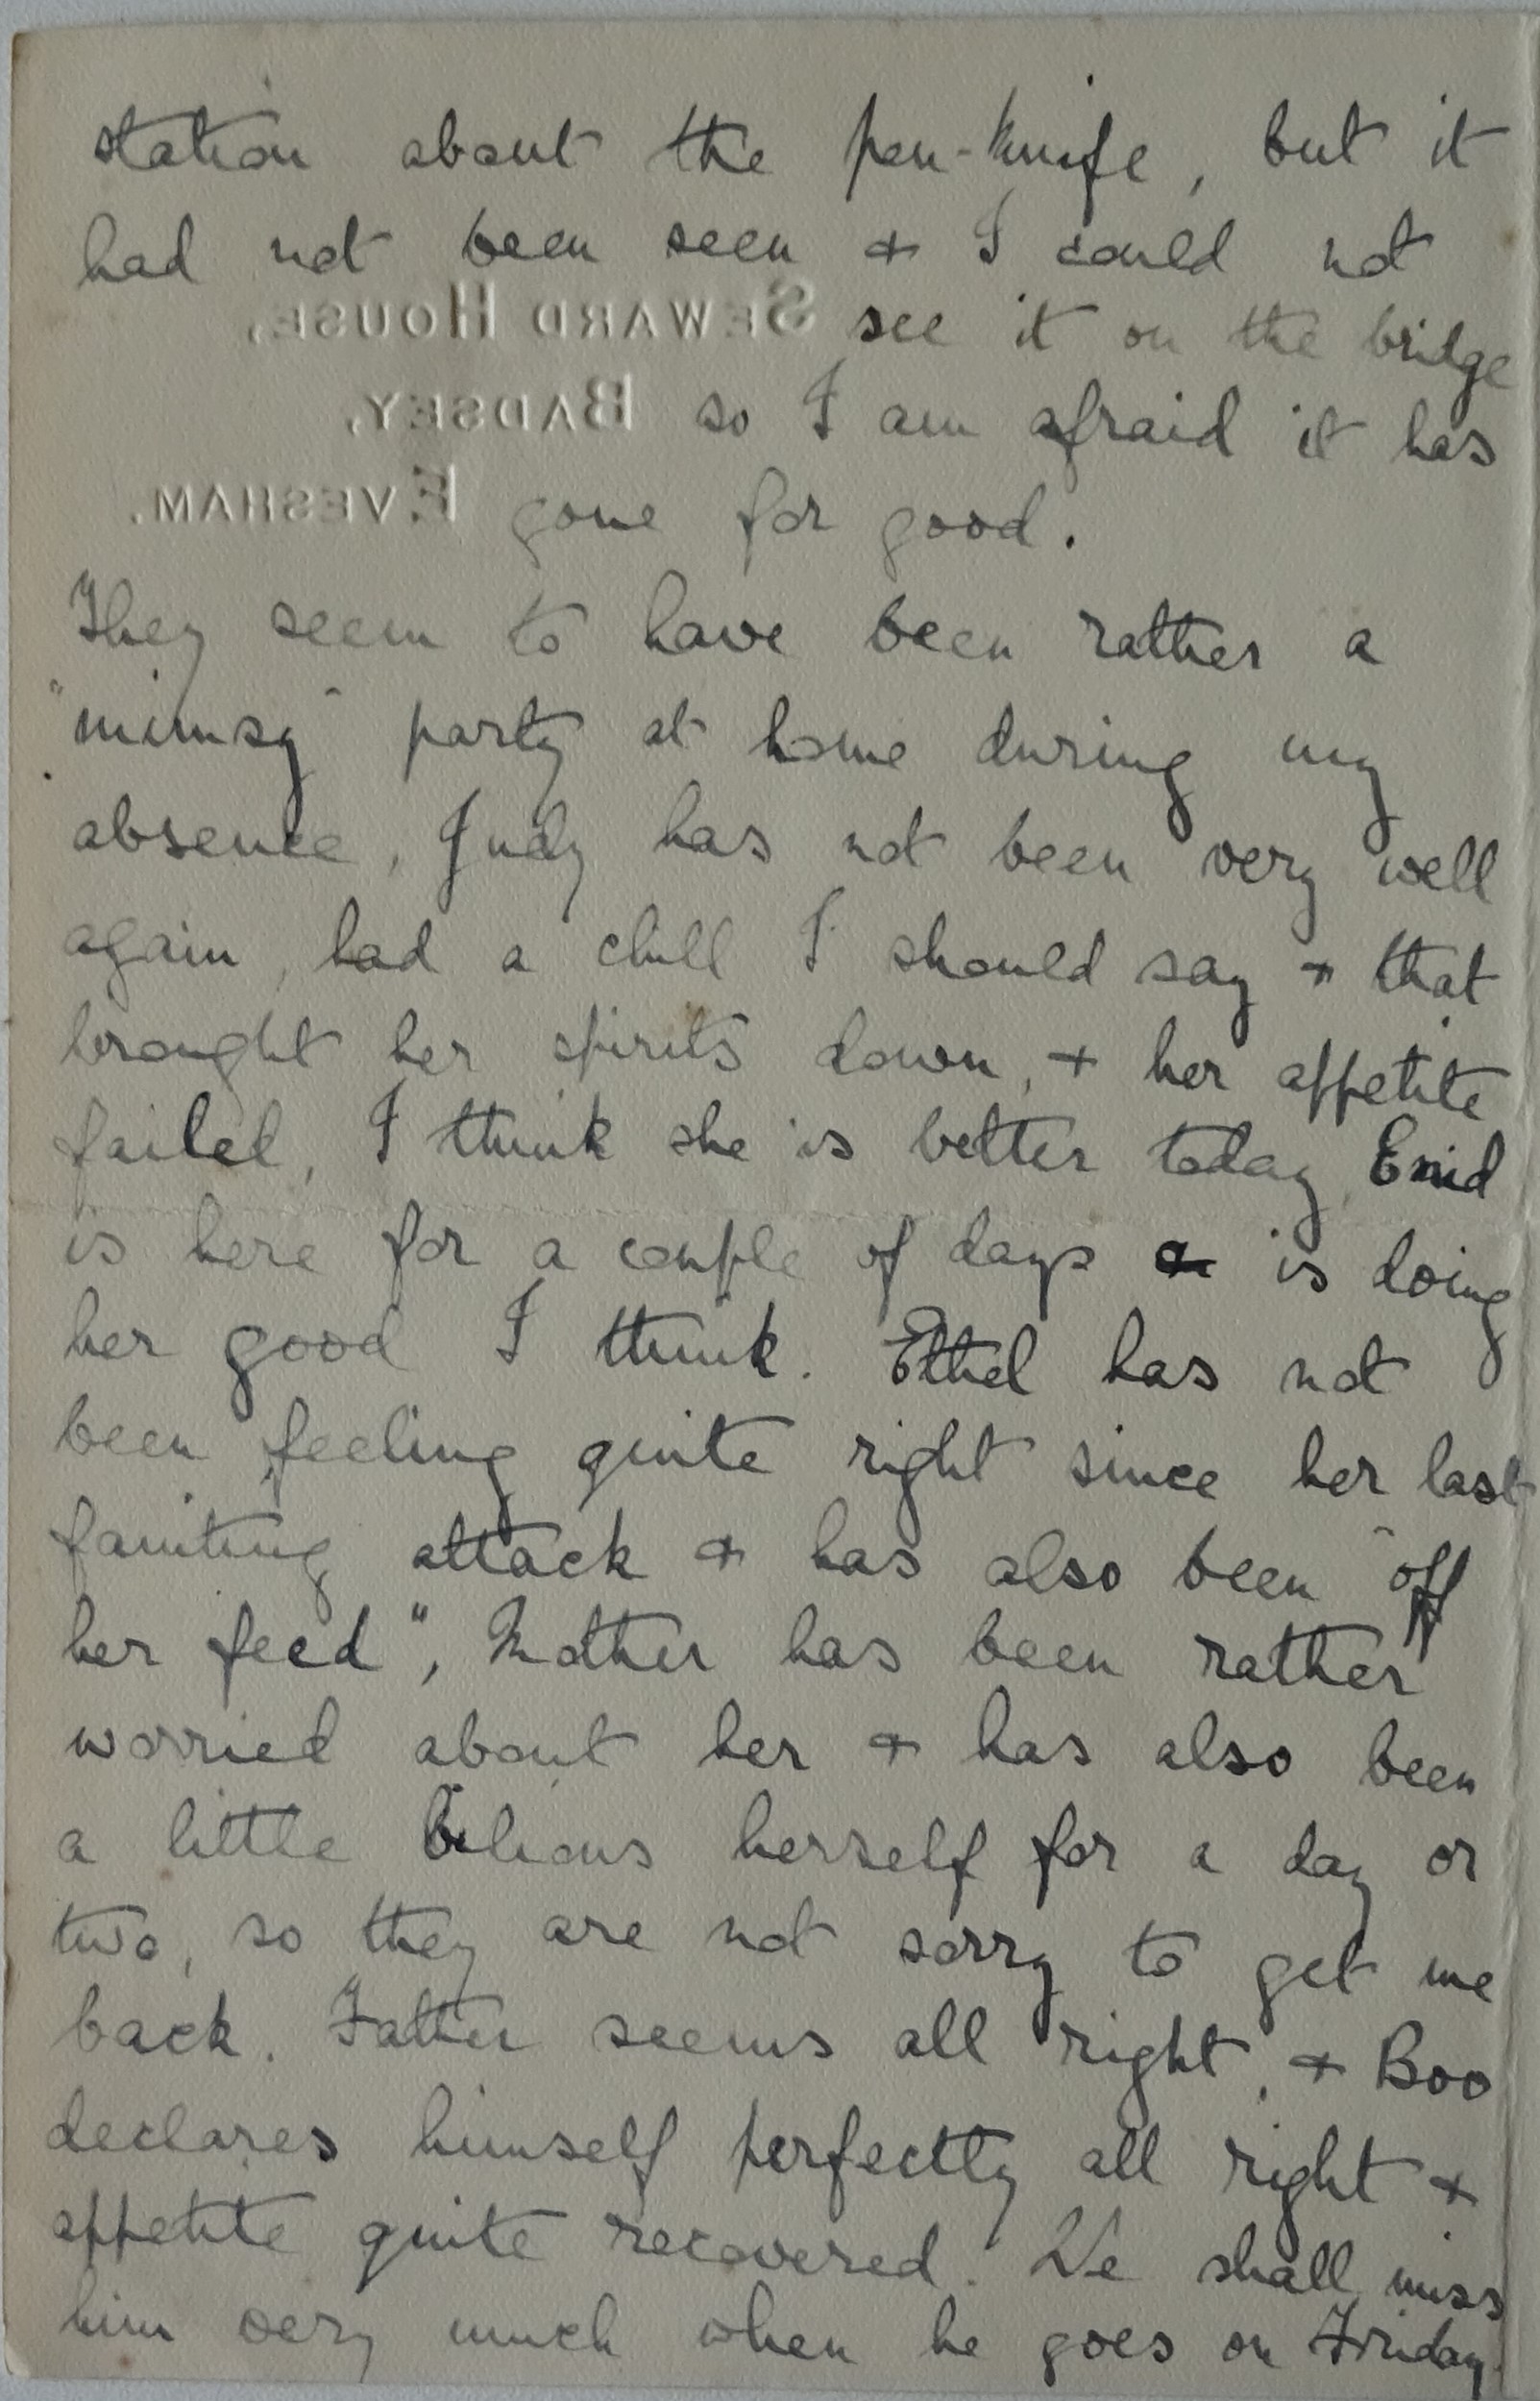 station about the pen-knife, but it
had not been seen + I could not
SEWARD HOUSE, see it on the bridge
BADSEY, so I am afraid it has
EVESHAM. gone for good.
They seem to have been rather a
"mimsy" party at home during my
absence, Judy has not been very well
again, had a chill I should say + that
brought her spirits down, + her appetite
failed, I think she is better today, Enid
is here for a couple of days & is doing
her good I think. Ethel has not
been feeling quite right since her last
fainting attack + has also been "off
her feed", Mother has been rather
worried about her + has also been
a little bilious herself for a day or
two, so they are not sorry to get me
back. Father seems all right, + Boo
declares himself perfectly all right +
appetite quite recovered. We shall miss
him very much when he goes on Friday.